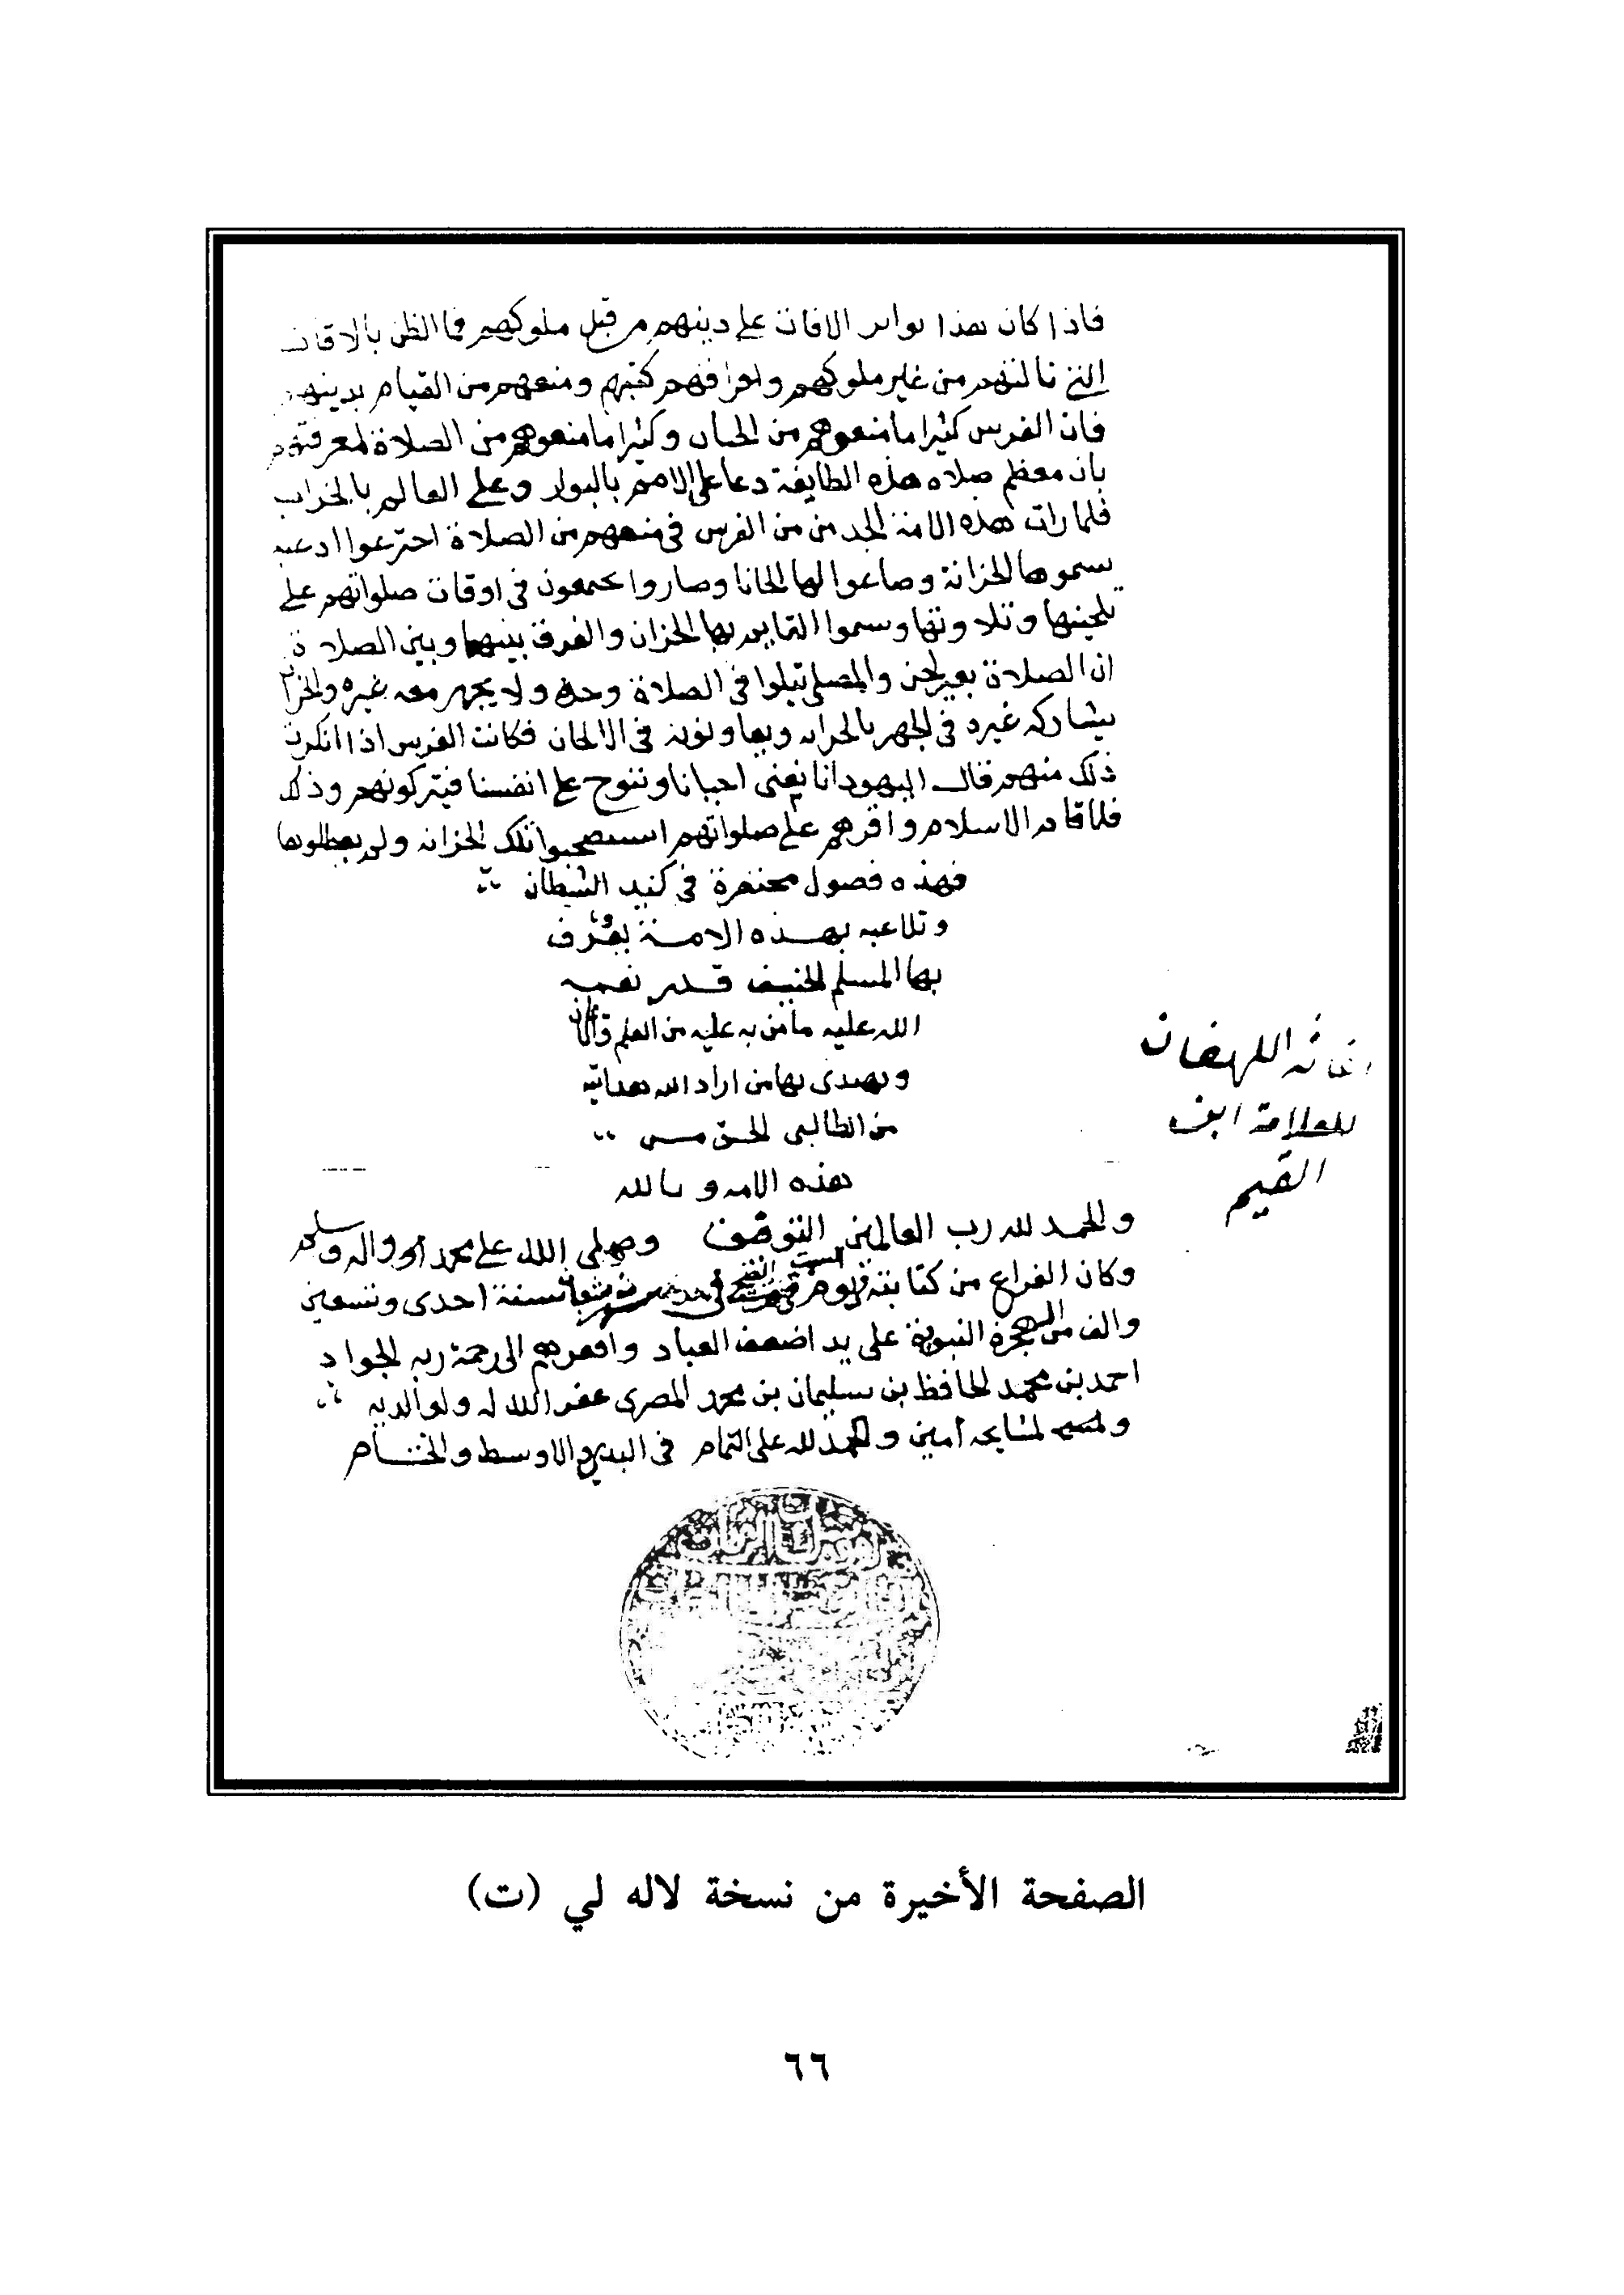 فاذا كان هذا تواتر الافات على دينهم من قبل ملوكهم فما الظن بالافات
التي نالتهم من غير ملوكهم واحراقهم كتبهم ومنعهم من القيام بدينهم
فان الفرس كثيرا ما منعوهم من الختان وكثيرا ما منعوهم من الصلاة لمعرفتهم
بان معظم صلاة هذه الطايفة دعا على الامم بالبوار وعلى العالم بالخراب
فلما رات هذه الامة الجد من الفرس في منعهم من الصلاة اخترعوا ادعية
سموها الخزانة وصاغوا لها الحانا وصاروا يجتمعون في اوقات صلواتهم على
تلحينها وتلاوتها وسموا القايم بها الخزان والفرق بينها وبين الصلاة
ان الصلاة بغير لحن والمصلي يتلوا في الصلاة وحده ولا يجهر معه غيره والخزان
يشاركه غيره في الجهر بالخزانه ويعاونونه في الالحان فكانت الفرس اذا انكرت
ذلك منهم قالت اليهود انا نغني احيانا وننوح على انفسنا فيتركونهم وذلك
فلما قام الاسلام واقرهم على صلواتهم استصحبوا تلك الخزانه ولم يعطلوها
فهذه فصول مختصرة في كيد الشيطان
وتلاعبه بهذه الامة يعرف
بها المسلم الحنيف قدر نعمة
الله عليه ما من به عليه من العلم والايمان
ويهدى بها من اراد الله هدايته
من الطالبي الحق من
هذه الامه وبالله
والحمد لله رب العالمين التوفيق وصلى الله على محمد واله وسلم
وكان الفراغ من كتابته يوم السبت في شهر شعبان سنة احدى وتسعين
والف من الهجرة النبوية على يد اضعف العباد وافقرهم الى رحمة ربه الجواد
احمد بن محمد الحافظ بن سليمان بن محمد المصرى غفر الله له ولوالديه
ولمشايخه امين والحمد لله على التمام في البدء والاوسط والختام
اغاثة اللهفان
للعلامة ابن
القيم
الصفحة الأخيرة من نسخة لاله لي (ت)
٦٦